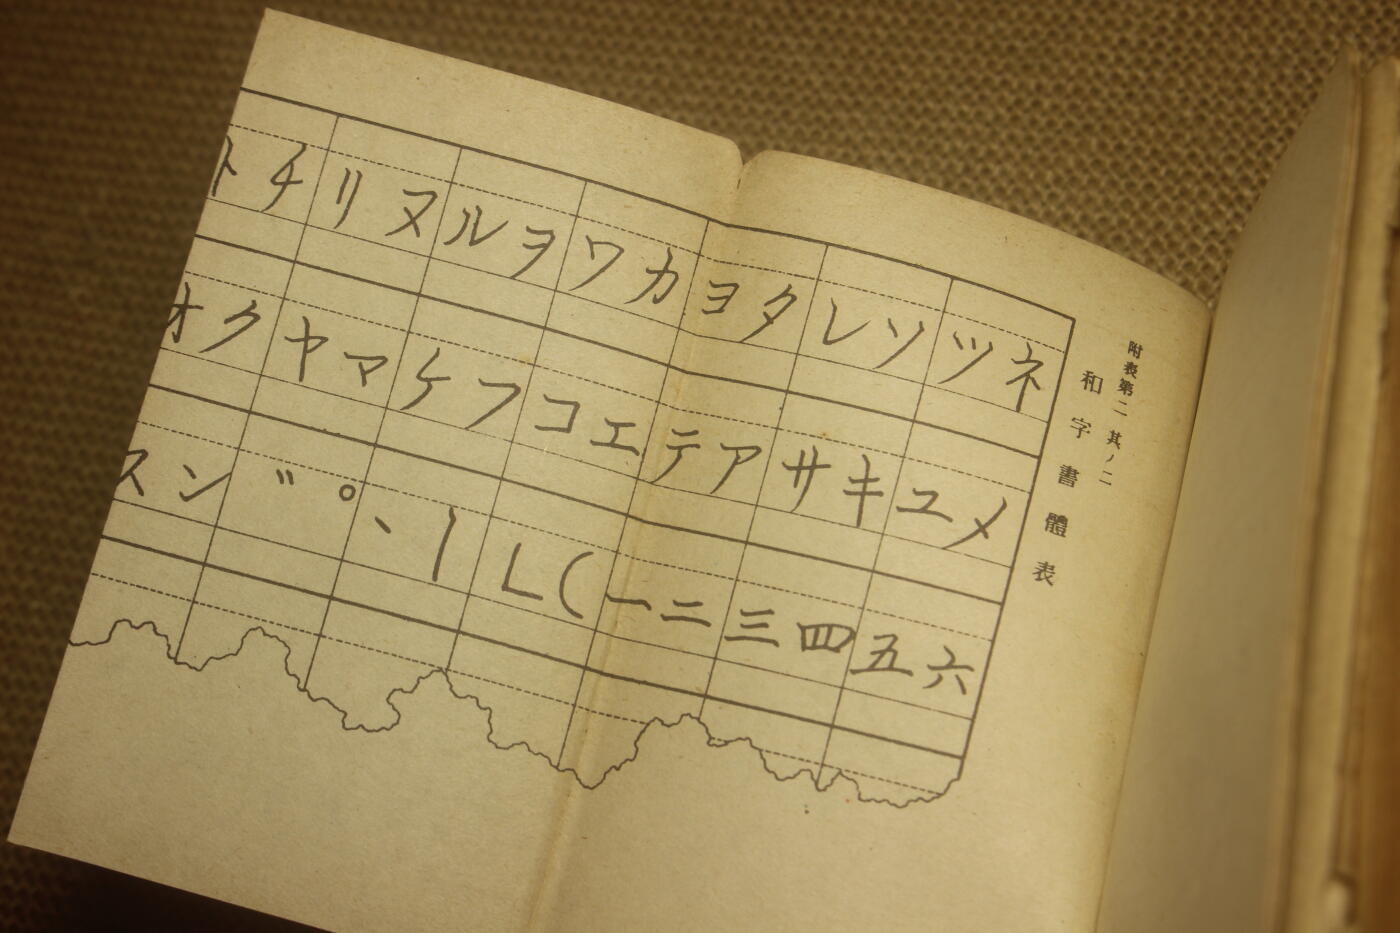 附表第二 其ノ二
和字書體表
トチリヌルヲワカヨタレソツネ
オクヤマケフコエテアサキユメ
スン゛゜、｜L(一二三四五六